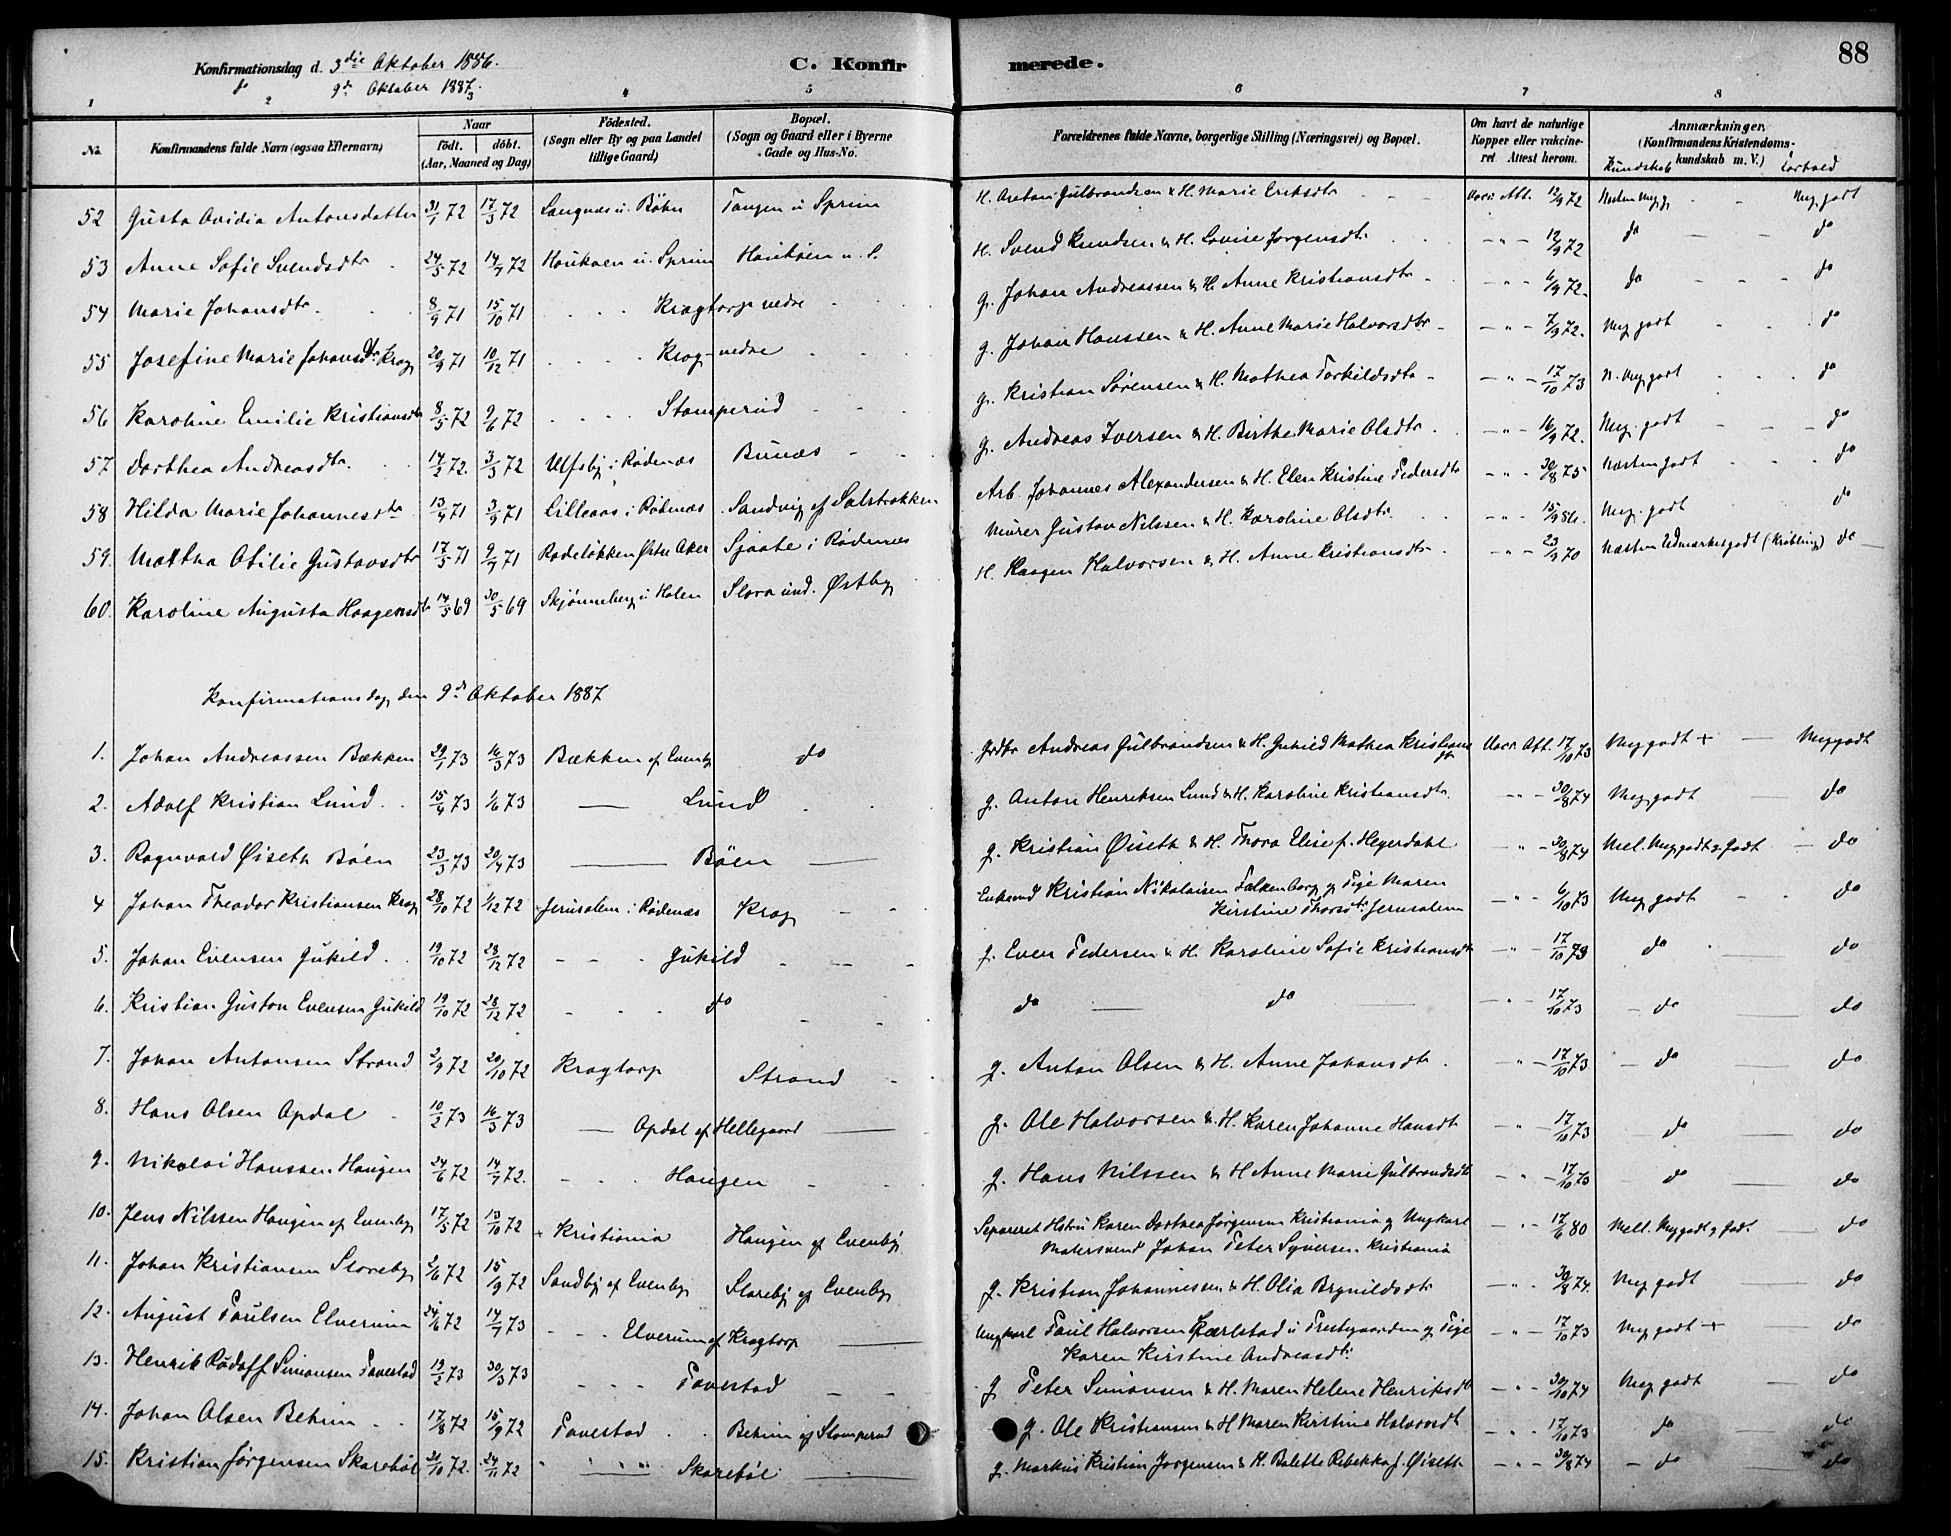 88
Konfirmationsdag d. 3die Oktober 1886.
do 9de Oktober 1887.
C. Konfirmerede.
1 2 3 4 5 6 7 8
No. Konfirmandens fulde Navn (ogsaa Efternavn) Naar født. døbt. (Aar, Maaned og Dag) Fødested. (Sogn eller By og paa Landet tillige Gaard) Bopæl. (Sogn og Gaard eller i Byerne Gade og Hus-No. Forældrenes fulde Navne, borgerlige Stilling (Næringsvei) og Bopæl. Om havt de naturlige Kopper eller vakcineret. Attest herom. Anmærkninger. (Konfirmandens Kristendomskundskab m. V.) Kundskab Forhold
52 Gusta Ovidia Antonsdatter 31/1 72 17/3 72 Langnæs u. Bøhn Tangen u Sprim H. Anton Gulbrandsen & H. Marie Eriksdtr Vacc. Att. 12/9 72 Næsten Meg. g. Meg. godt
53 Anne Sofie Svendsdtr 24/5 72 14/7 72 Houkaen u. Sprim H. Svend Knudsen & H. Lovise Jørgensdtr 12/9 72 do do
54 Marie Johansdtr 8/9 71 15/10 71 Kragtorp nedre g. Johan Andreassen & H. Anne Kristiansdtr 6/9 72 do do
55 Josefine Marie Johansdtr Krog 20/9 71 10/12 71 Krog nedre g. Johan Hanssen & H. Anne Marie Halvorsdtr 7/9 72 Meg godt do
56 Karoline Emilie Kristiansdtr 8/5 72 9/6 72 Stomperud g. Kristian Sørensen & H. Mathea Torkildsdtr 17/10 73 N. Meg godt do
57 Dorthea Andreasdtr 14/2 72 3/3 72 Ulfsby i Rødenæs Bunæs g. Andreas Iversen & H. Birthe Marie Olsdtr 16/9 72 Meg. godt do
58 Hilda Marie Johannesdtr 13/4 71 3/9 71 Lilleaas i Rødenæs Sandvig af Salstrøkken Arb. Johannes Alexandersen & H. Elen Kristine Pedersdtr 30/8 75 Næsten godt do
59. Martha Otilie Gustavsdtr 17/5 71 9/7 71 Rodeløkken Østre Aker Sjaate i Rødenæs Murer Gustav Nilssen & H. Karoline Olsdtr 15/9 86 Meg. godt do
60. Karoline Augusta Haagensdtr 14/5 69 30/5 69 Skjønneberg u Holen Slora und. Østby H. Haagen Halvorsen & H. Anne Kristiansdtr 23/9 70 Næsten Udmærket godt do
Konfirmationsdag den 9de Oktober 1887
1. Johan Andreassen Bækken 29/1 73 16/3 73 Bækken af Evenby do Grdbr Andreas Gulbrandsen & H. Gunild Mathea Kristiansdtr Vacc. Att. 17/10 73 Meg godt + Meg godt
2. Adolf Kristian Lund 15/4 73 1/6 73 Lund g. Anton Henriksen Lund & H. Karoline Kristiansdtr 30/8 74 Meg godt do
3. Ragnvald Øiseth Bøen 23/3 73 20/4 73 Bøen g. Kristian Øiseth & H. Thora Elise f. Heyerdahl 30/8 74 Mel. Meg godt & Godt do
4 Johan Theodor Kristiansen Krog 28/10 72 1/12 72 Jerusalem i Rødenæs Krog Enkemd Kristian Nikolaisen Falkenborg og Pige Maren Kirstine Thorsdtr Jerusalem 6/10 73 Meg godt do
5. Johan Evensen Gukild 19/10 72 28/12 72 Gukild g. Even Pedersen & H. Karoline Sofie Kristiansdtr 17/10 73 do do
6. Kristian Gustav Evensen Gukild 19/10 72 28/12 72 do do do 17/10 73 do do
7. Johan Antonsen Strand 2/9 72 20/10 72 Kragtorp Strand g. Anton Olsen & H. Anne Johansdtr 17/10 73 do do
8. Hans Olsen Opdal 10/2 73 16/3 73 Opdal af Hellegaard g. Ole Halvorsen & H. Karen Johanne Hansdtr 17/10 73 do do
9. Nikolai Hanssen Haugen 24/6 72 14/7 72. Haugen g. Hans Nilssen & H Anne Marie Gulbrandsdtr 17/10 73 do do
10. Jens Nilssen Haugen af Evenby 17/5 72 13/10 72 Kristiania Haugen af Evenby Separeret Hstru Karen Dorthea Jørgensen Kristiania og Ungkarl Malersvend Johan Peter Syversen Kristiania 17/6 80 Mell. Meg godt & Godt do
11. Johan Kristiansen Sloreby 2/6 72 15/9 72 Sandby af Evenby Sloreby af Evenby g. Kristian Johannessen & H. Olia Brynildsdtr 30/8 74. Meg godt do
12. August Paulsen Elverum 24/6 72 14/7 73 Elverum af Kragtorp Ungkarl Paul Halvorsen Karlstad u Prestegaarden og Pige Karen Kirstine Andreasdtr 17/10 73 Meg godt + do
13. Henrik Rudolf Simonsen Tavestad 19/2 73 30/3 73 Tavestad g Peter Simonsen & H. Maren Helene Henriksdtr 30/10 74 Meg godt do
14. Johan Olsen Behim 17/8 72 15/9 72 Tavestad Behim af Stomperud g. Ole Kristiansen & H Maren Kirstine Halvorsdtr 17/10 73 do do
15. Kristian Jørgensen Skarebøl 21/10 72 24/11 72 Skarebøl g. Markus Kristian Jørgensen & H. Balette Rebekka f. Øiseth 30/8 74 do do